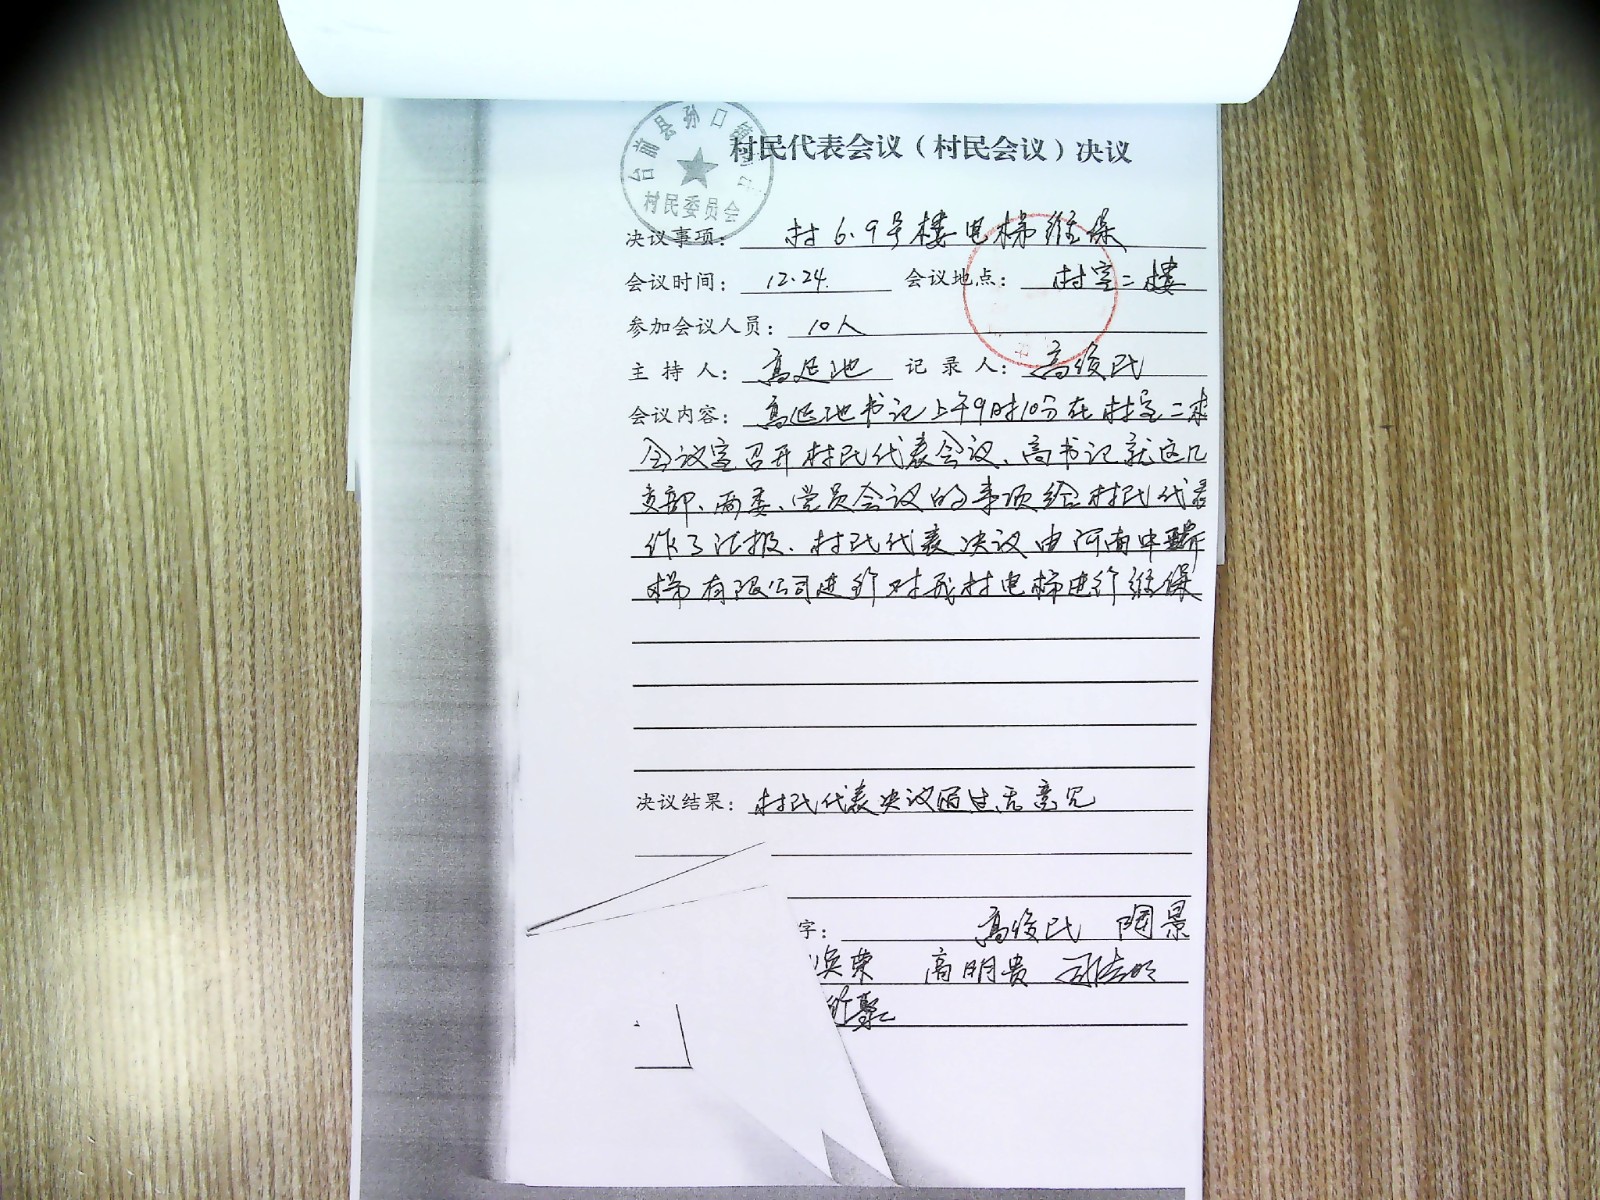 台前县孙口镇
村民委员会
村民代表会议（村民会议）决议
决议事项： 村6.9号楼电梯维保
会议时间： 12.24. 会议地点： 村室二楼
参加会议人员： 10人
主持人： 高延池 记录人： 高俊民
会议内容： 高延池书记上午9时10分在村室二楼
会议室召开村民代表会议、高书记就这几
支部、两委、党员会议的事项给村民代表
作了汇报、村民代表决议由河南中
梯有限公司进行对我村电梯进行维保
决议结果： 村民代表决议通过无意见
字： 高俊民 陶景
焕荣 高明贵
聚